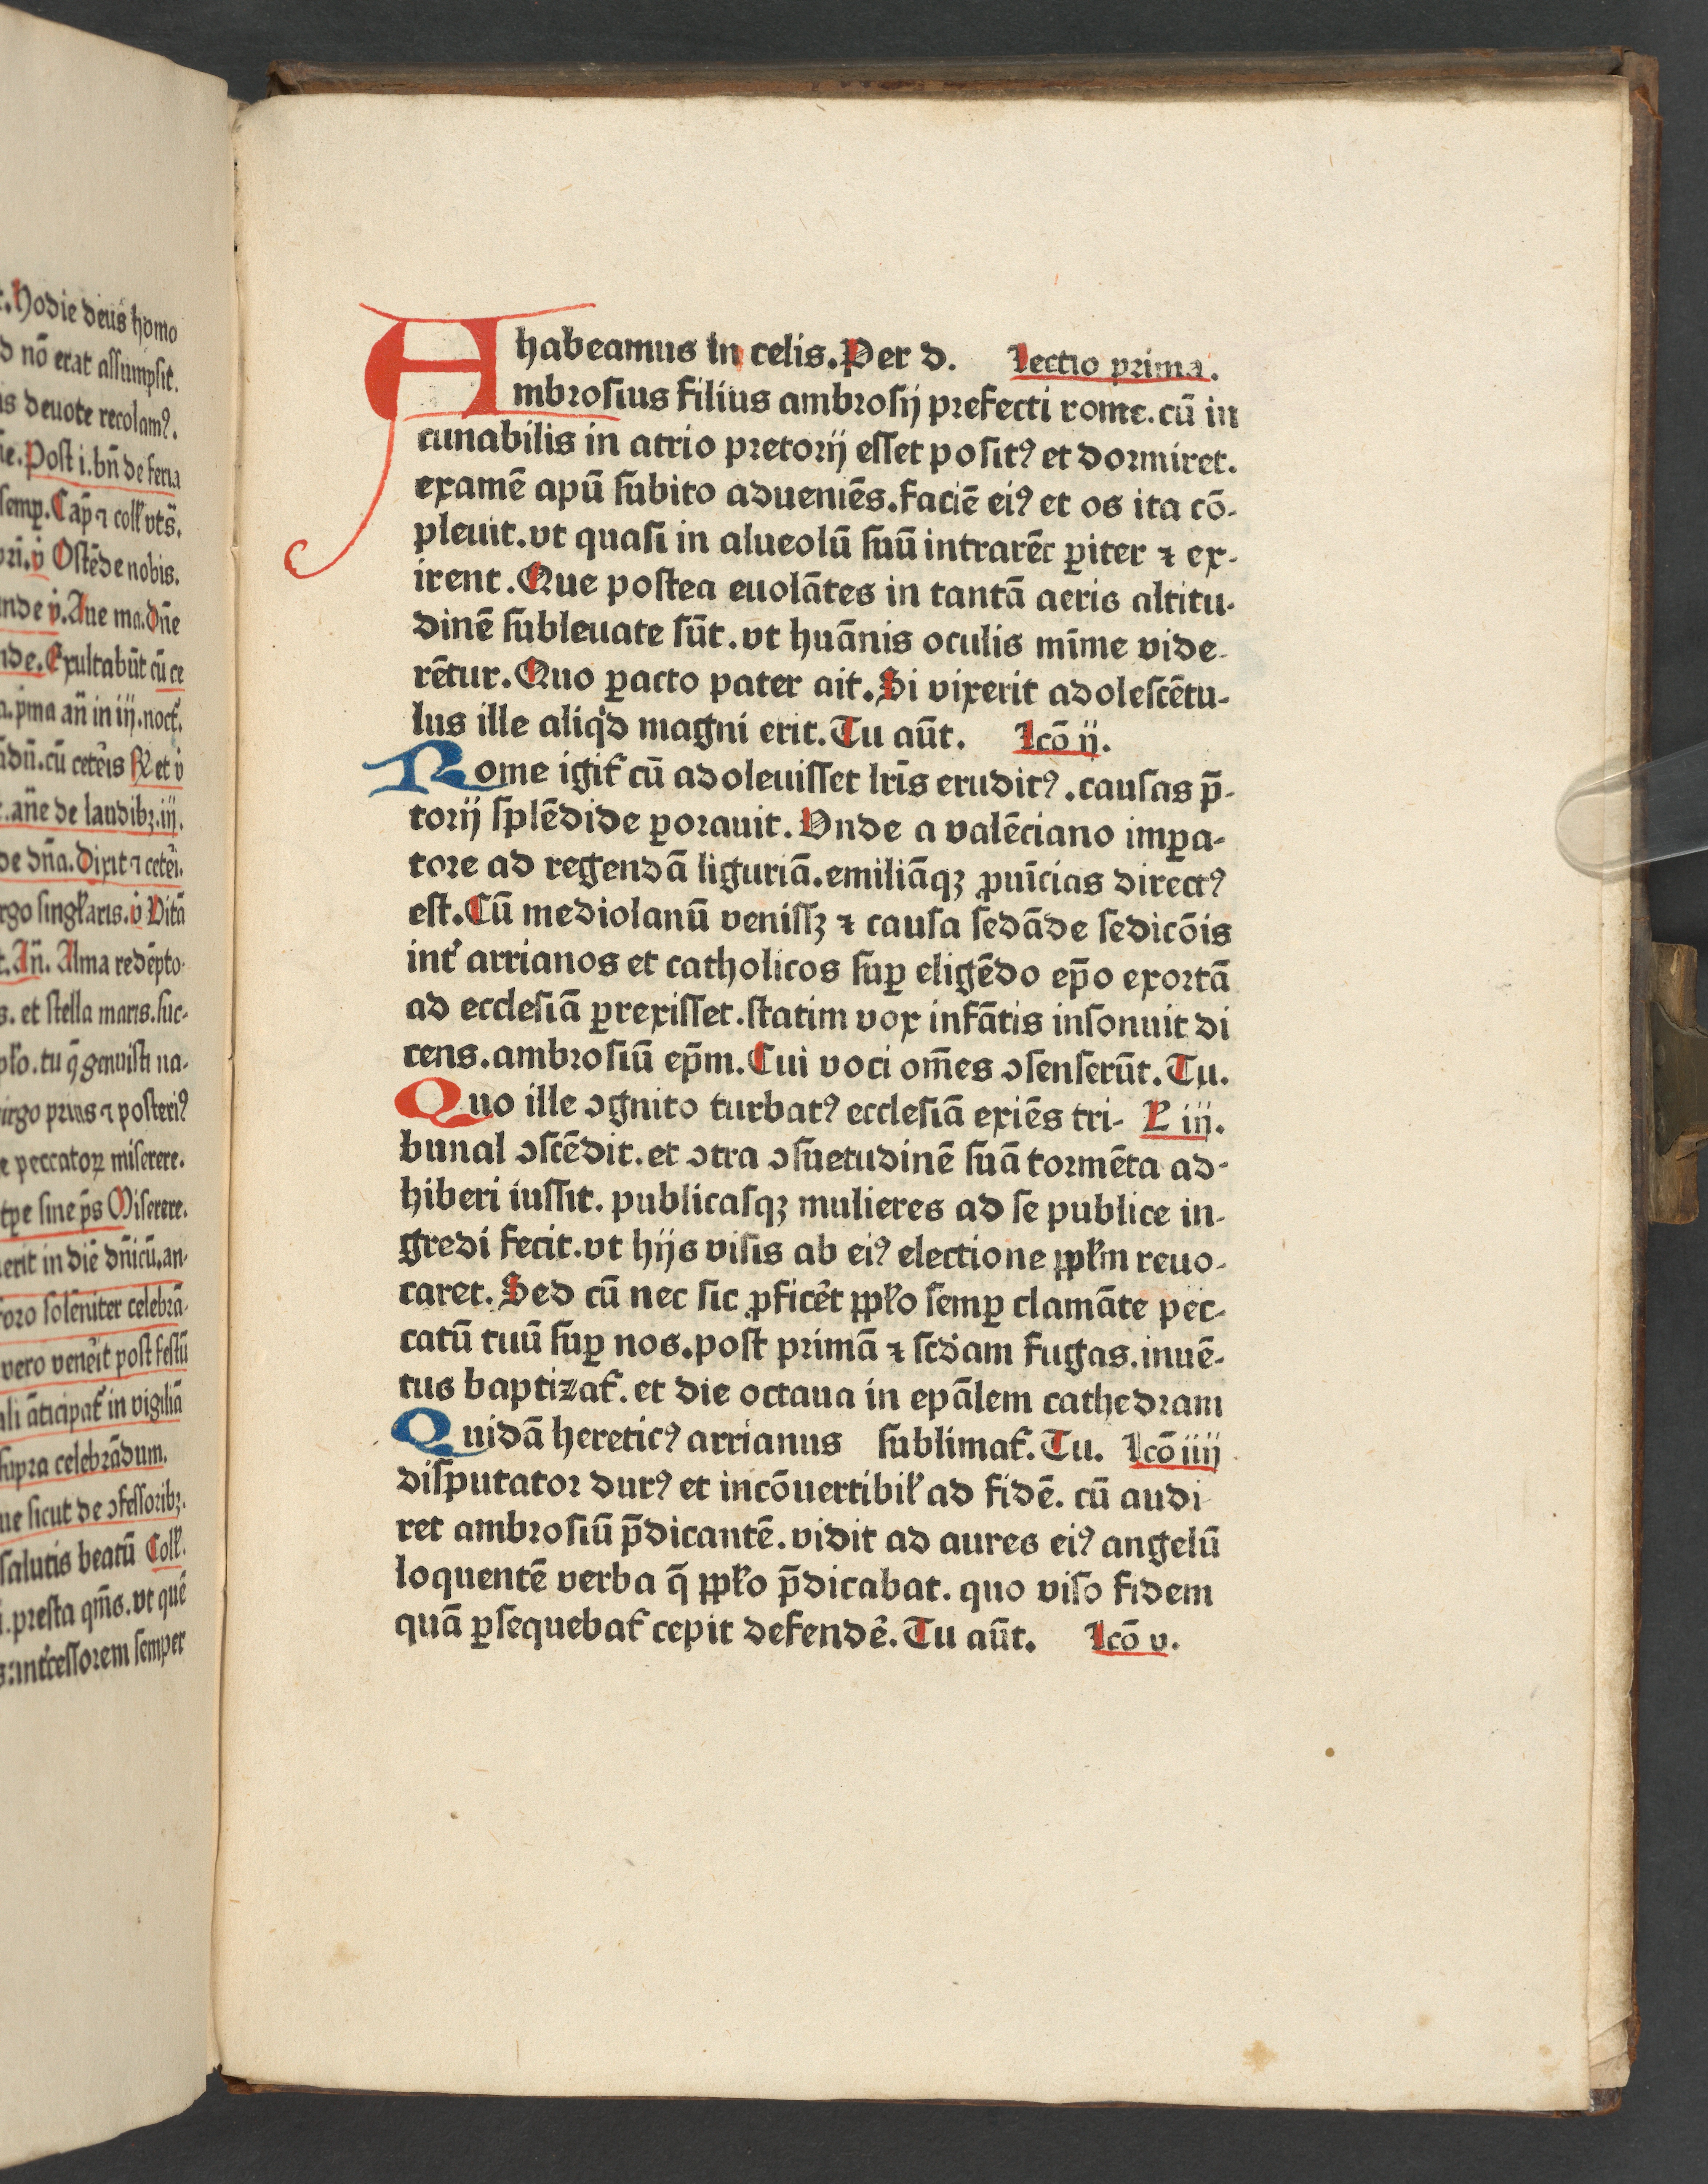 . Hodie deus homo
d nō erat assumpsit.
is deuote recolamꝰ.
ne. Post i. bn̄ de feria
semꝑ. Cap̄ ⁊ coll̓ vts̄.
ꝟ Ostēde nobis.
nde ꝟ. Aue ma. Dn̄e
nde. Exultabūt cū ce
a. pma an̄ in iij. noct̓.
dn̄. cū ceteis ℞ et ꝟ
. an̄e de laudibꝫ. iij.
de dn̄a. Dixit ⁊ cetei.
rgo singl̓aris. ꝟ Vitā
t. An̄. Alma redēpto
s. et stella maris. suc-
pl̓o. tu q̄ genuisti na-
irgo prius ⁊ posteriꝰ
e peccatoꝝ miserere.
tp̄e sine p̄s Miserere.
erit in diē dn̄icū. an-
oro solēniter celebrā-
vero veneit post festū
ali āticipat̓ in vigiliā
supra celebrādum.
ue sicut de ꝯfessoribꝫ.
salutis beatū Coll̓.
i. presta qm̄s. vt quē
s: int̓cessorem semper
habeamus in celis. Per d. Lectio prima.
Ambrosius filius ambrosij prefecti rome. cū in
cunabilis in atrio pretorij esset positꝰ et dormiret.
examē apū subito adueniēs. faciē eiꝰ et os ita cō-
pleuit. vt quasi in alueolū suū intrarēt ꝑiter ⁊ ex-
irent. Que postea euolātes in tantā aeris altitu-
dinē subleuate sūt. vt huānis oculis mīme vide-
rētur. Quo ꝑacto pater ait. Si vixerit adolescētu-
lus ille aliqͥd magni erit. Tu aūt. Lcō ij.
Rome igit̓ cū adoleuisset lr̄is eruditꝰ. causas p̄-
torij splēdide ꝑorauit. Vnde a valēciano imꝑa-
tore ad regendā liguriā. emiliāqꝫ ꝓuīcias directꝰ
est. Cū mediolanū venissꝫ ⁊ causa sedāde sedicōis
int̓ arrianos et catholicos suꝑ eligēdo ep̄o exortā
ad ecclesiā ꝑrexisset. statim vox infātis insonuit di
cens. ambrosiū ep̄m. Cui voci om̄es ꝯsenserūt. Tu.
Quo ille ꝯgnito turbatꝰ ecclesiā exiēs tri- L iij.
bunal ꝯscēdit. et ꝯtra ꝯsuetudinē suā tormēta ad-
hiberi iussit. publicasqꝫ mulieres ad se publice in-
gredi fecit. vt hijs visis ab eiꝰ electione ppl̓m reuo-
caret. Sed cū nec sic ꝓficet̓ ppl̓o semꝑ clamāte pec-
catū tuū suꝑ nos. post primā ⁊ scd̓am fugas. inuē-
tus baptizat̓. et die octaua in epālem cathedram
Quidā hereticꝰ arrianus sublimat̓. Tu. Lcō iiij
disputator durꝰ et incōuertibil̓ ad fidē. cū audi
ret ambrosiū p̄dicantē. vidit ad aures eiꝰ angelū
loquentē verba q̄ ppl̓o p̄dicabat. quo viso fidem
quā ꝑsequebat̓ cepit defende̓. Tu aūt. Lcō v.